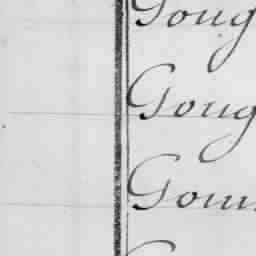 Goug
Goug
Gou